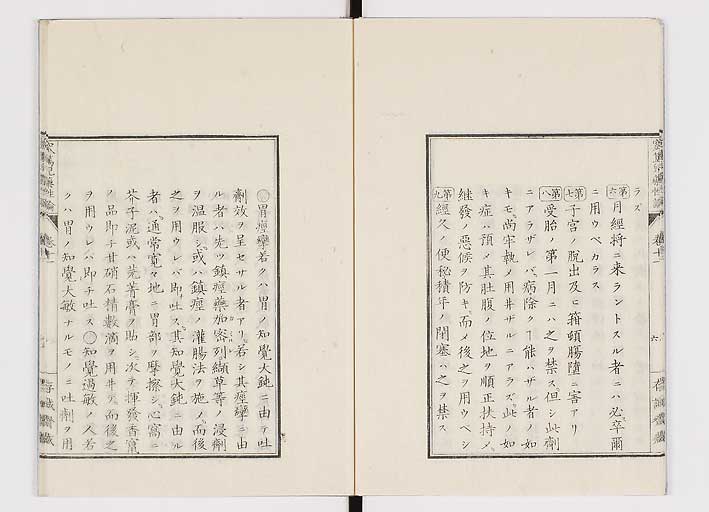 ラズ
第六月經將ニ来ラントスル者ニハ必卒爾
ニ用ウベカラス
第七子宮ノ脱出及ヒ箝頓腸墮ニ害アリ
第八受胎ノ第一月ニハ之ヲ禁ス但シ此劑
ニアラザレバ病除クヿ能ハザル者ノ如
キモ尚牢執ノ用井ザルニアラズ此ノ如
キ症ハ預メ其肚腹ノ位地ヲ順正扶持メ
継發ノ悪候ヲ防キ而メ後之ヲ用ウベシ
第九經久ノ便秘積年ノ閉塞ハ之ヲ禁ス
六
○胃痙攣若クハ胃ノ知覺大鈍ニ由テ吐
劑效ヲ呈セサル者アリ若シ其痙攣ニ由
ル者ハ先ツ鎮痙藥加密列纈草等ノ浸劑
ヲ温服シ或ハ鎮痙ノ灌腸法ヲ施ノ而後
之ヲ用ウレバ即吐ス其知覺大鈍ニ由ル
者ハ通常寛々地ニ胃部ヲ摩擦シ心窩ニ
芥子泥或ハ芫菁膏ヲ貼シ次テ揮發香竄
ノ品即チ甘硝石精數滴ヲ用井テ而後之
ヲ用ウレハ即チ吐ス○知覺過敏ノ人若
クハ胃ノ知覺大敏ナルモノニ吐劑ヲ用